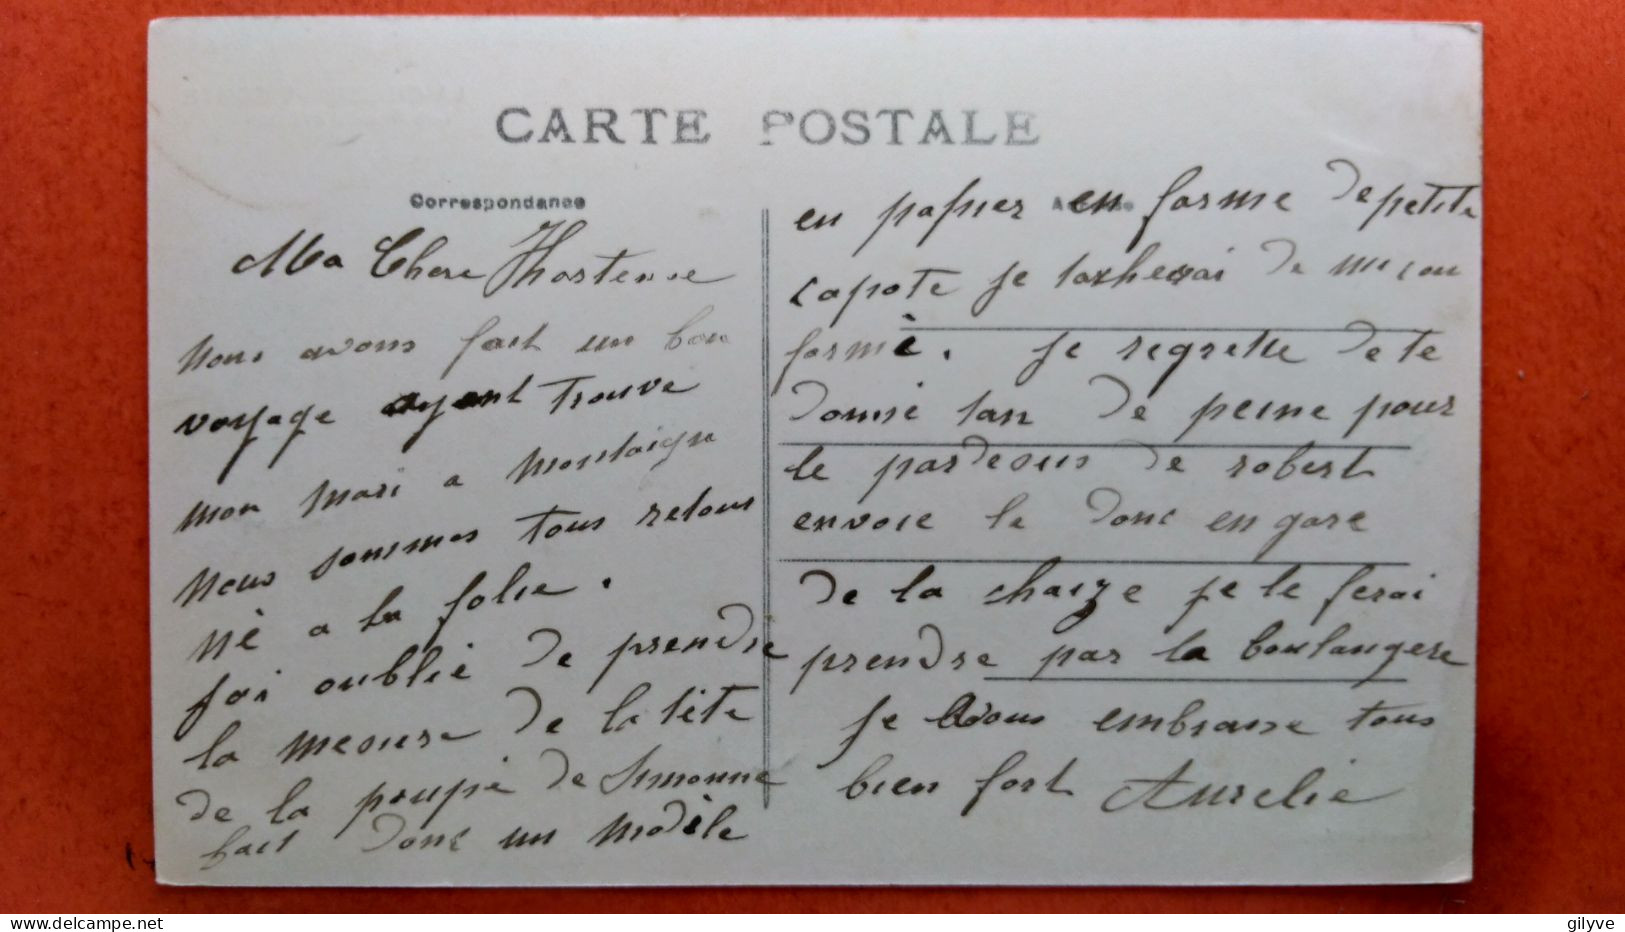 CARTE POSTALE
Correspondance
Ma Chere Hhortense
Nous avons fait un bon
voyage ayent trouve
mon mari a Montaigu
Nous sommes tous retour
né a la folie.
jai oublié de prendre
la mesure de la tète
de la poupé de Simonne
fait donc un modèle
en papier en forme de petite
capote je tacherai de
formè. Je regrette de te
donné tan de peine pour
le pardesus de robert
envoie le donc en gare
de la chaize je le ferai
prendre par la boulangere
je vous embrasse tous
bien fort Aurelie
gilyve